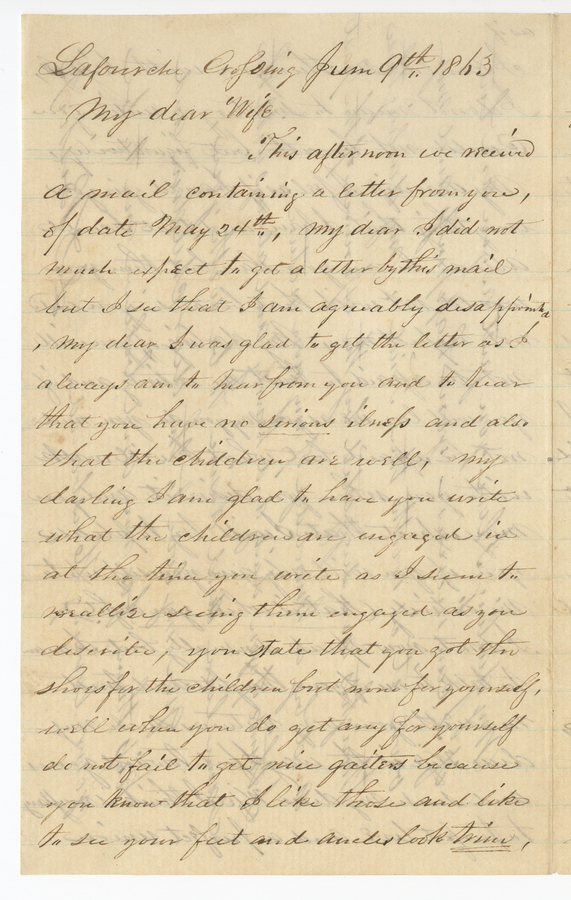 Lafourche Crossing June 9th 1863
My dear Wife
This afternoon we received
a mail containing a letter from you,
of date May 24th, my dear I did not
much expect to get a letter by this mail
but I see that I am agreeably disappointed
, my dear I was glad to get the letter as I
always am to hear from you and to hear
that you have no serious ilness and also
that the children are well, my
darling I am glad to have you write
what the children are engaged in
at the time you write as I seem to
reallize seeing them engaged as you
describe, you state that you got the
shoes for the children but none for yourself,
well when you do get any for yourself
do not fail to get nice gaiters because
you know that I like those and like
to see your feet and ancles look trim,